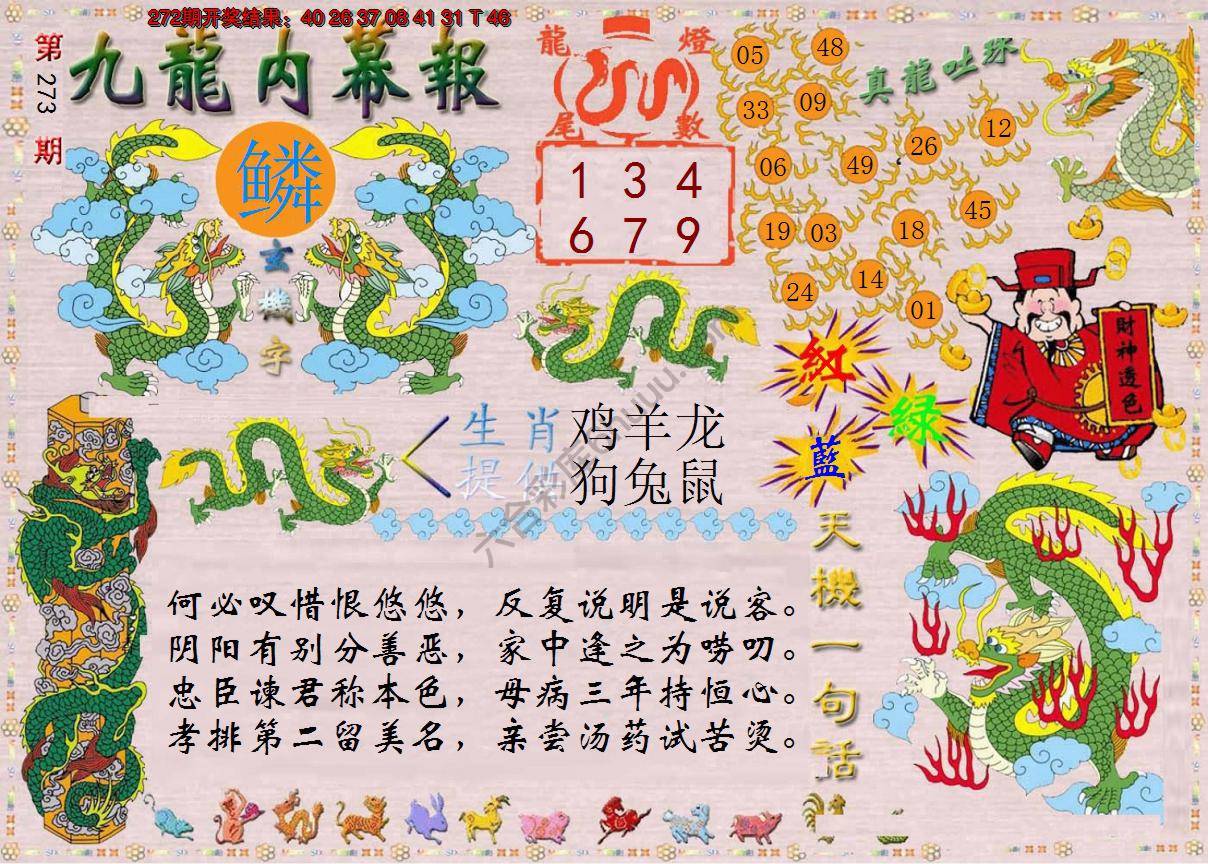 272期开奖结果：40 26 37 08 41 31 T 46
第273期
九龍内幕報
鳞
玄機字
龍燈尾數
1 3 4
6 7 9
真龍吐珠
05 48
33 09
26 12
06 49
45
19 03 18
24 14 01
財神透色
紅
綠
藍
生肖 鸡羊龙
提供 狗兔鼠
天機一句話
何必叹惜恨悠悠，反复说明是说客。
阴阳有别分善恶，家中逢之为唠叨。
忠臣谏君称本色，母病三年持恒心。
孝排第二留美名，亲尝汤药试苦烫。